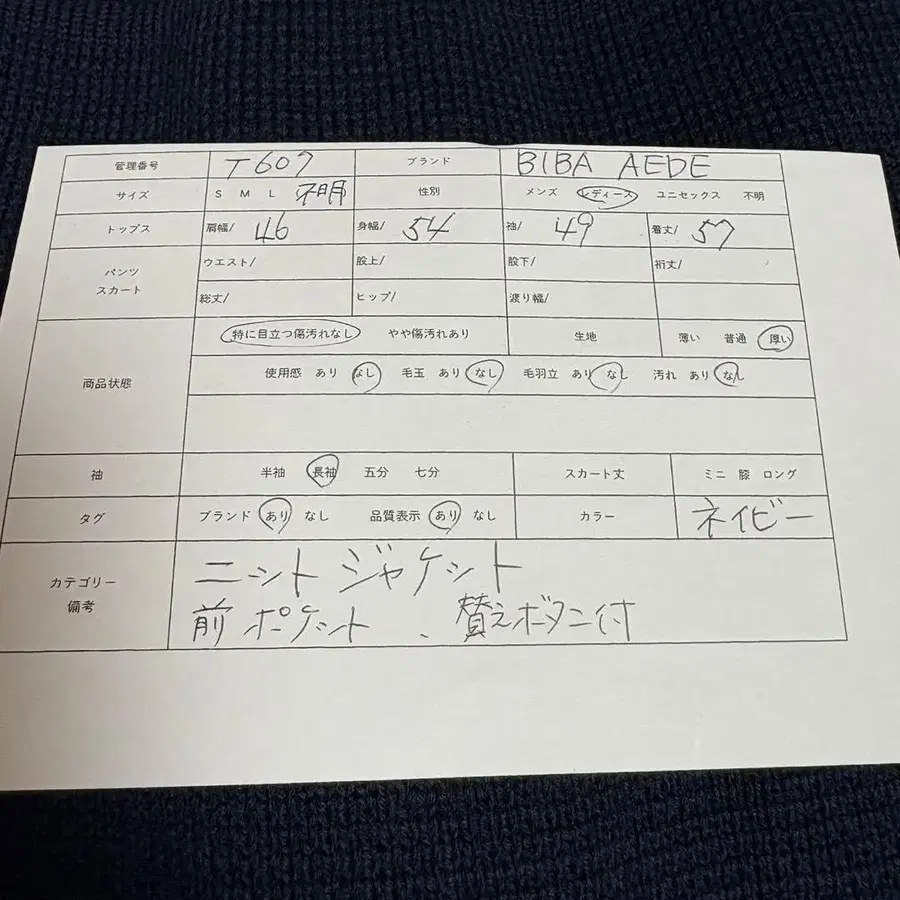 管理番号 T607 ブランド BIBA AEDE
サイズ S M L 不明 性別 メンズ レディース ユニセックス 不明
トップス 肩幅/ 46 身幅/ 54 袖/ 49 着丈/ 57
パンツ スカート ウエスト/ 股上/ 股下/ 裄丈/
総丈/ ヒップ/ 渡り幅/
商品状態 特に目立つ傷汚れなし やや傷汚れあり 生地 薄い 普通 厚い
使用感 あり なし 毛玉 あり なし 毛羽立 あり なし 汚れ あり なし
袖 半袖 長袖 五分 七分 スカート丈 ミニ 膝 ロング
タグ ブランド あり なし 品質表示 あり なし カラー ネイビー
カテゴリー 備考 ニットジャケット
前ポケット、替えボタン付